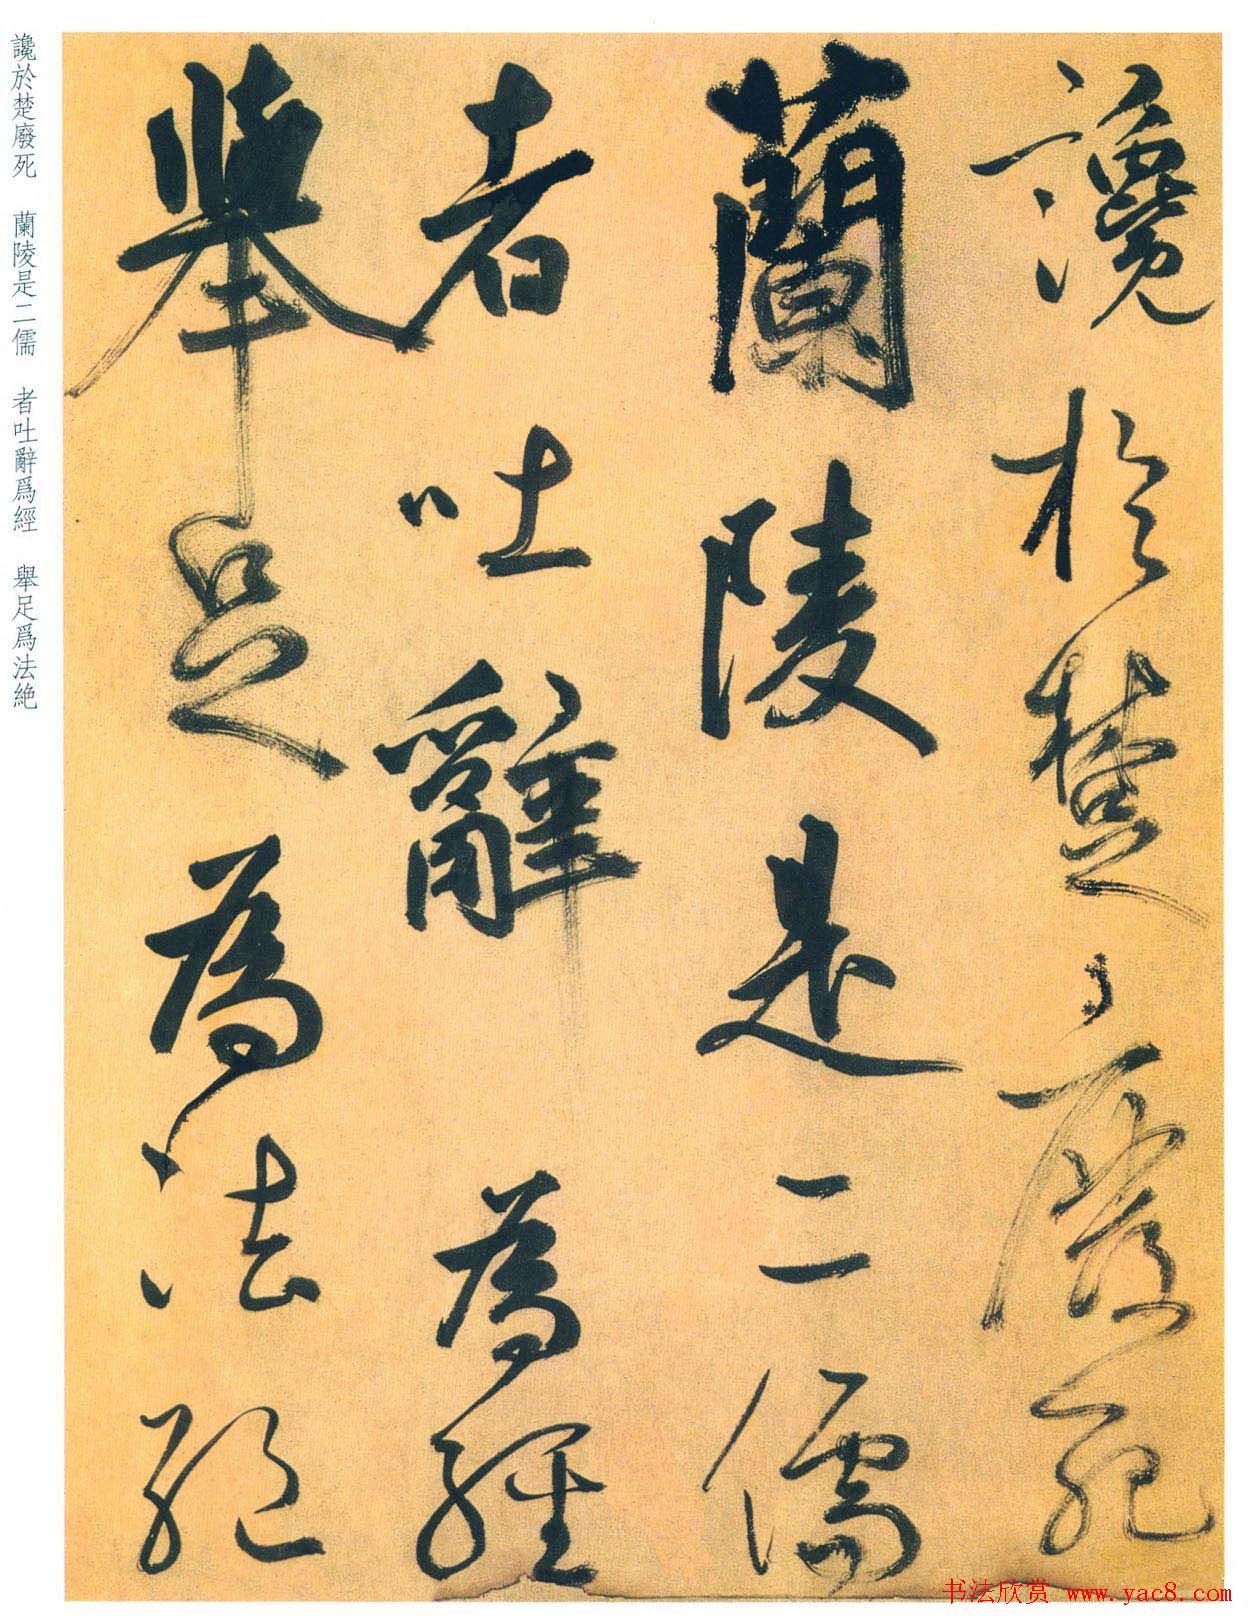 讒於楚廢死
蘭陵是二儒
者吐辭為經
舉足為法絕
讒於楚廢死 蘭陵是二儒 者吐辭爲經 舉足爲法絶
书法欣赏 www.yac8.com